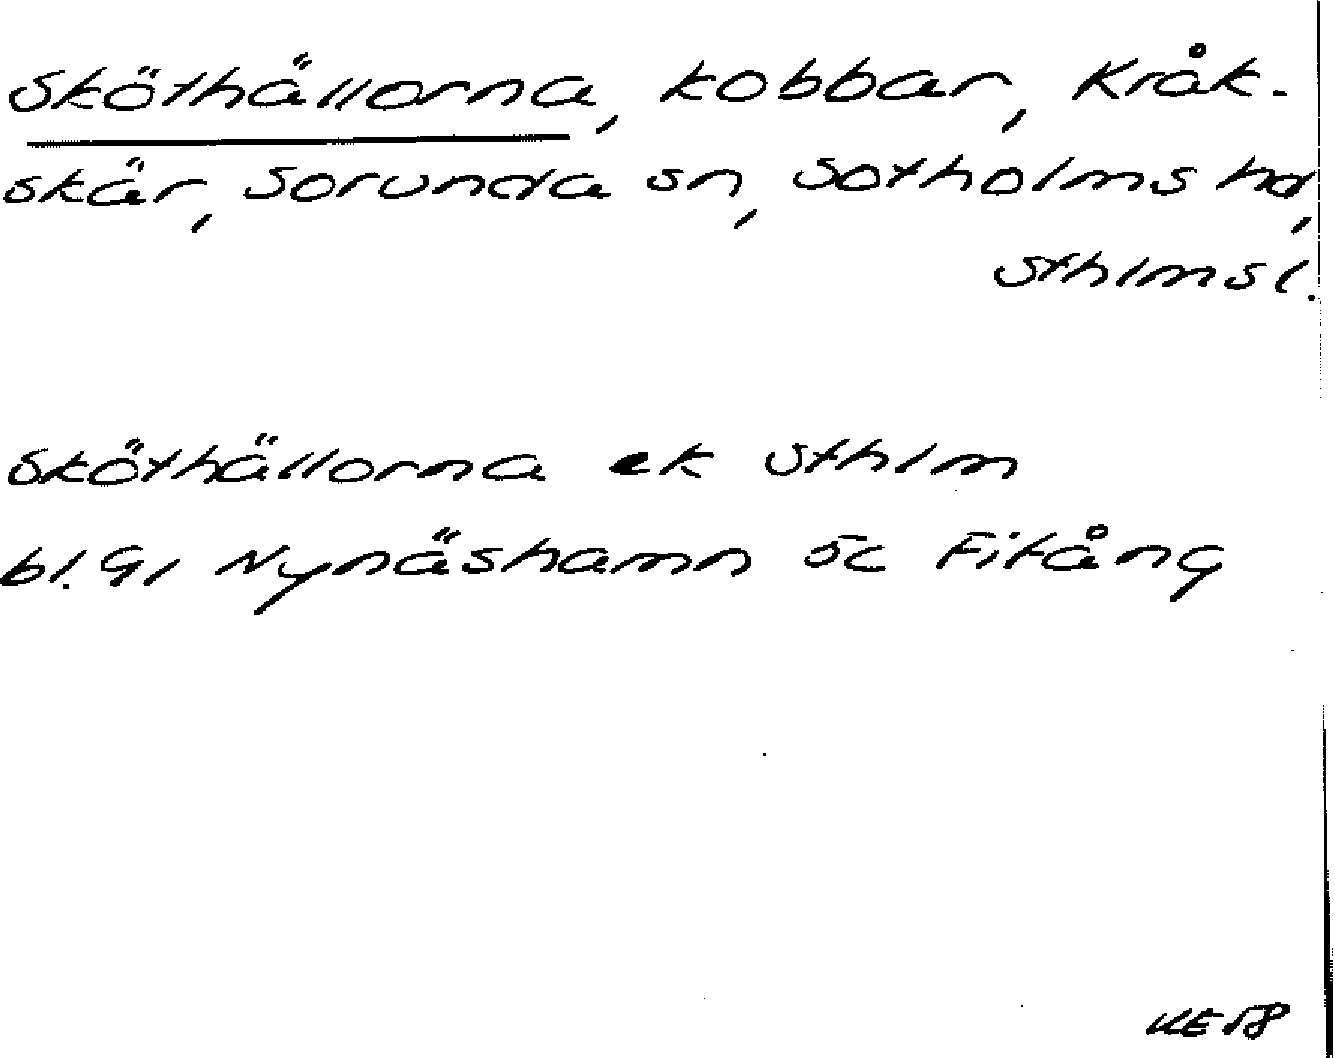 Sköthällorna, kobbar, Kråk-
skär, Sorunda sn, Sotholms hd,
Sthlms l.
Sköthällorna ek Sthlm
bl. 91 Nynäshamn 5c Fifång
KE 58